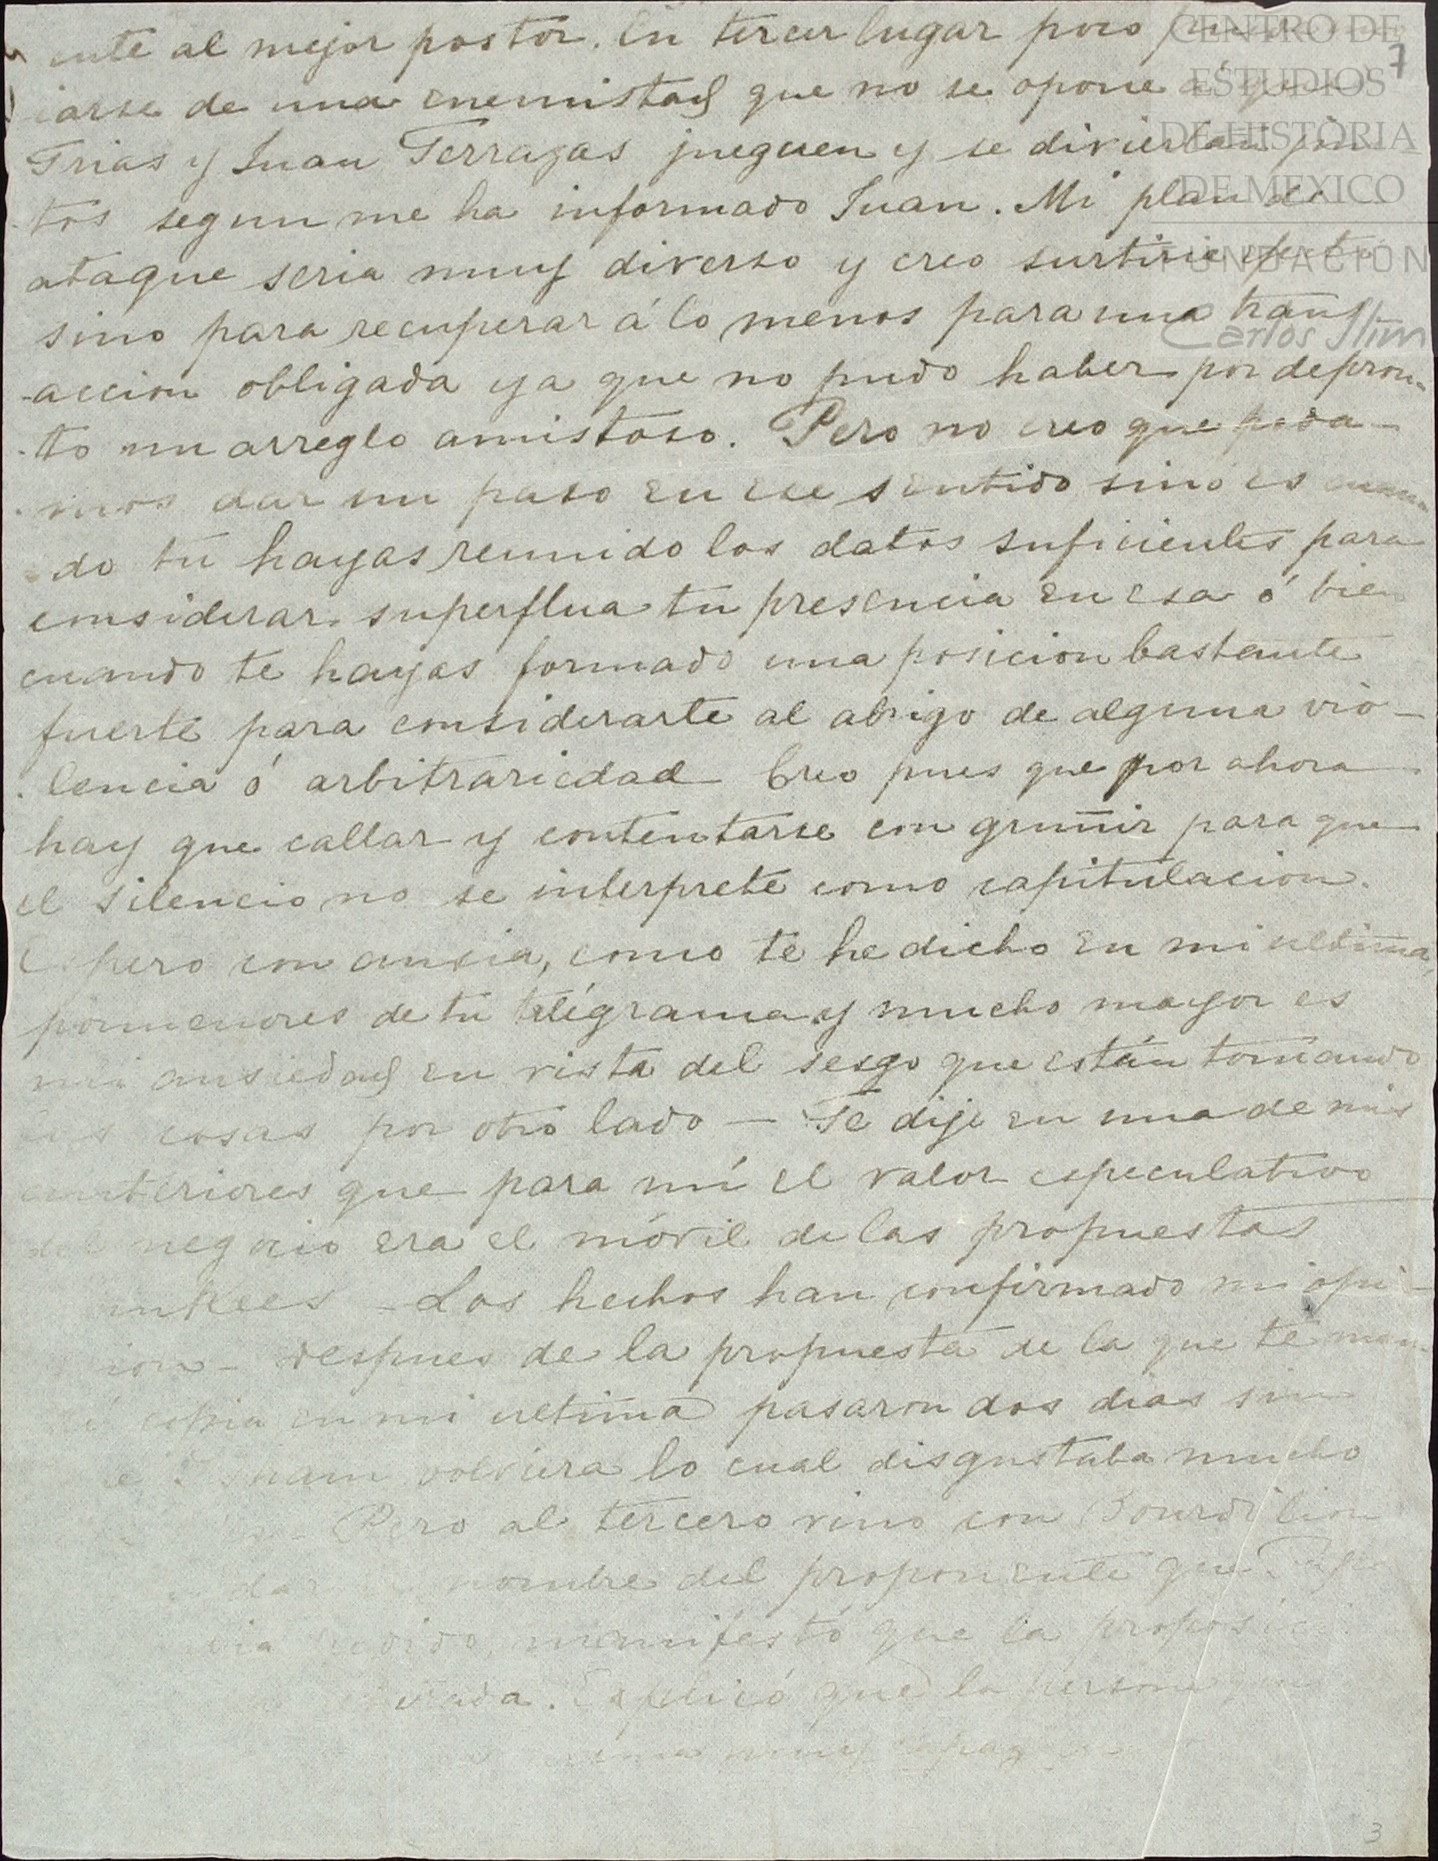 ente al mejor postor. En tercer lugar poco
iarse de una enemistad que no se opone á que
Trias y Juan Terrazas jueguen y se diviertan jun-
tos segun me ha informado Juan. Mi plan de
ataque seria muy diverso y creo surtiria efecto
sino para recuperar á lo menos para una trans
-accion obligada ya que no pudo haber por depron-
-to un arreglo amistoso. Pero no creo que poda-
-mos dar un paso en ese sentido sino es cuan-
do tu hayas reunido los datos suficientes para
considerar superflua tu presencia en esa ó bien
cuando te hayas formado una posicion bastante
fuerte para considerarte al abrigo de alguna vio-
lencia ó arbitrariedad Creo pues que por ahora
hay que callar y contentarse con gruñir para que
el silencio no se interprete como capitulacion.
Espero con ansia, como te he dicho en mi ultima,
pormenores de tu telégrama y mucho mayor es
mi ansiedad en vista del sesgo que están tomando
las cosas por otro lado — Te dije en una de mis
anteriores que para mí el valor especulativo
del negocio era el móvil de las propuestas
ankees - Los hechos han confirmado mi opi-
ion - despues de la propuesta de la que te man-
é copia en mi ultima pasaron dos dias sin
volviera lo cual disgustaba mucho
Pero al tercero vino con Bourdillon
nombre del proponente que
manifestó que la proposici
Esplicó que la persona
muy capaz
7
3
CENTRO DE
ESTUDIOS
DE HISTORIA
DE MEXICO
FUNDACIÓN
Carlos Slim